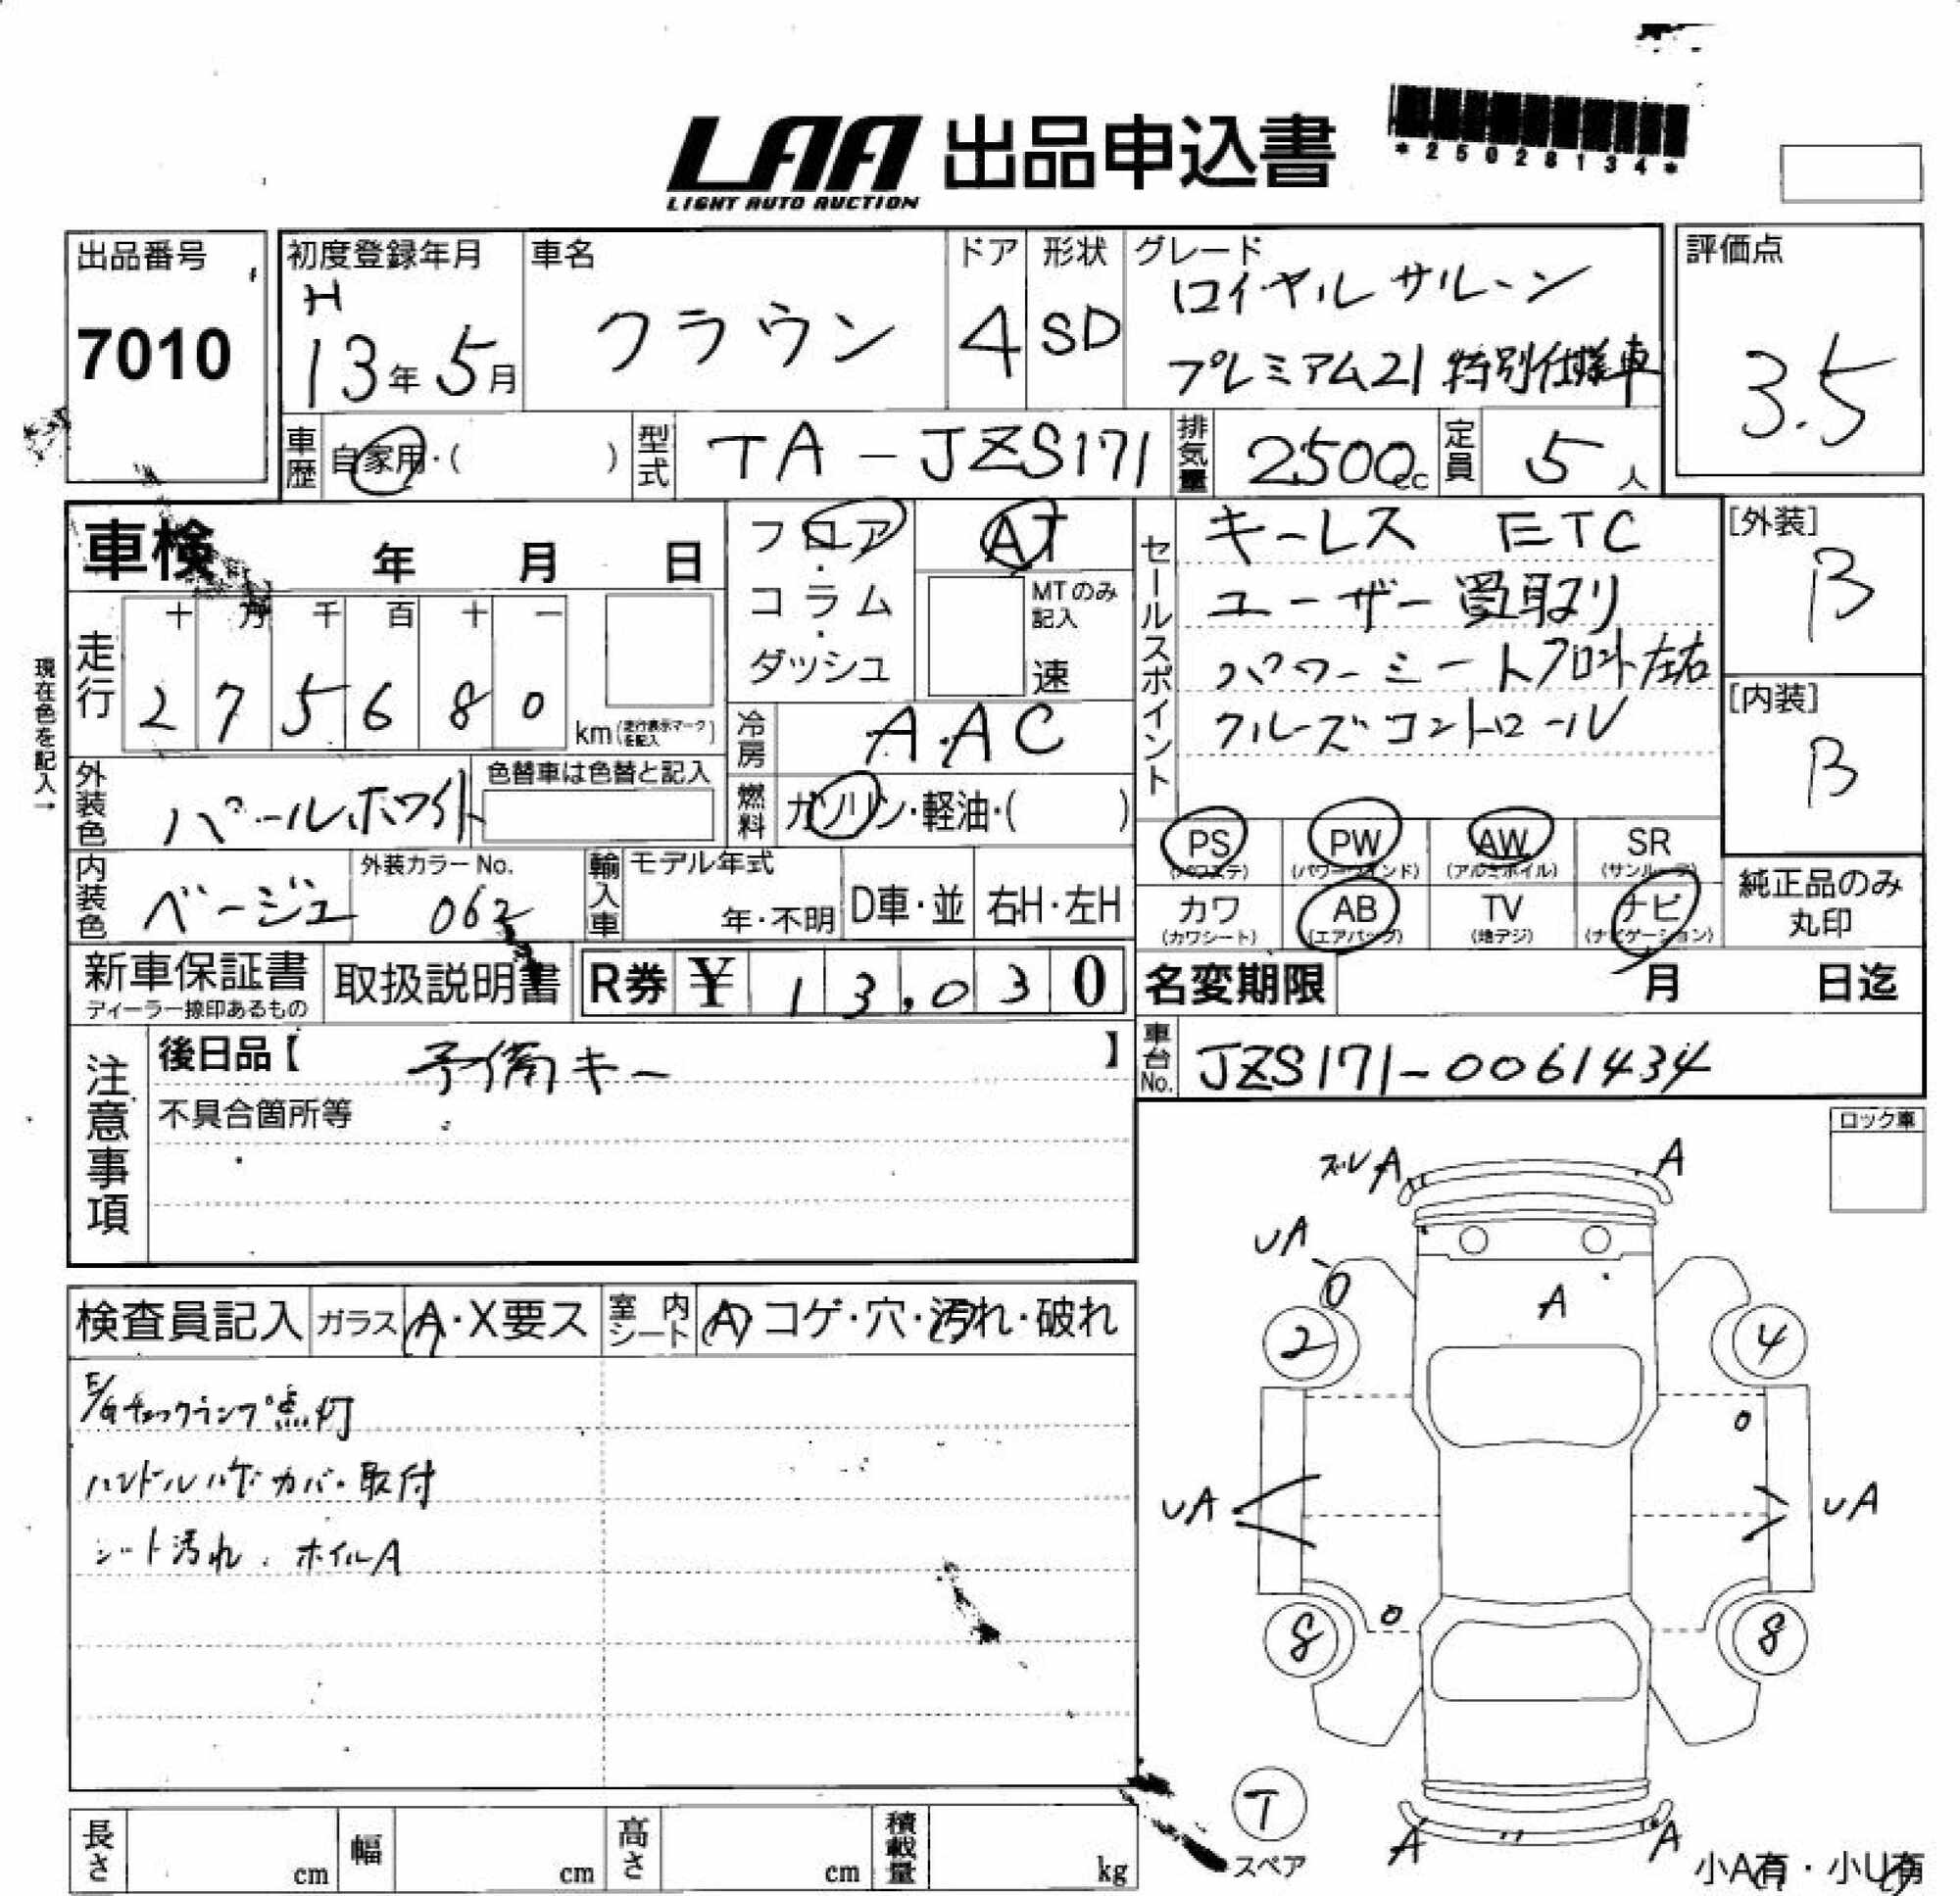 LAA 出品申込書
LIGHT AUTO AUCTION
*25028134*
出品番号
7010
初度登録年月
H
13年 5月
車名
クラウン
ドア
4
形状
SD
グレード
ロイヤルサルーン
プレミアム21 特別仕様車
評価点
3.5
車歴
自家用・( )
型式
TA-JZS171
排気量
2500cc
定員
5人
車検 年 月 日
現在色を記入→
走行
十 万 千 百 十 一
2 7 5 6 8 0
km (走行表示マークを記入)
フロア・コラム・ダッシュ
AT
MTのみ記入
速
冷房
A.AC
燃料
ガソリン・軽油・( )
外装色
パールホワイト
色替車は色替と記入
内装色
ベージュ
外装カラーNo.
062
輸入車
モデル年式
年・不明
D車・並
右H・左H
セールスポイント
キーレス ETC
ユーザー買取り
パワーシートフロント左右
クルーズコントロール
[外装]
B
[内装]
B
PS PW AW SR
(パワステ) (パワーウインド) (アルミホイル) (サンルーフ)
カワ AB TV ナビ
(カワシート) (エアバッグ) (地デジ) (ナビゲーション)
純正品のみ
丸印
新車保証書
ディーラー捺印あるもの
取扱説明書
R券 ¥ 13,030
名変期限 月 日迄
車台No.
JZS171-0061434
注意事項
後日品【 予備キー 】
不具合箇所等
ロック車
検査員記入
ガラス A・X要ス
室内シート A コゲ・穴・汚れ・破れ
E/Gチェックランプ点灯
ハンドルハゲ カバー取付
シート汚れ. ホイルA
ズレA A
UA
A
2 4
UA UA
8 8
T
スペア
A A
小A有・小U有
長さ cm
幅 cm
高さ cm
積載量 kg